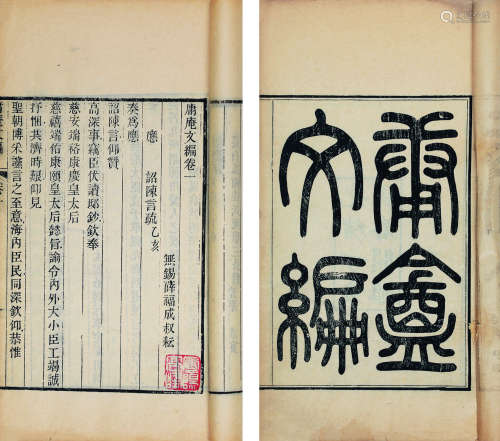 庸盦
文編
庸庵文編卷一
無錫薛福成叔耘
應 詔陳言疏乙亥
奏為應
詔陳言仰贊
高深事竊臣伏讀邸鈔欽奉
慈安端裕康慶皇太后
慈禧端佑康頤皇太后懿旨諭令內外大小臣工竭誠
抒悃共濟時艱仰見
聖朝博采讜言之至意海內臣民同深欽仰恭惟